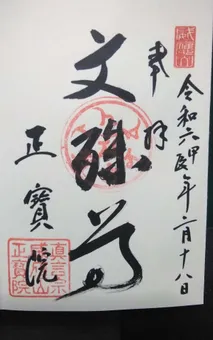 令和六甲辰年二月十八日
奉拝
文殊尊
正寶院
真言宗
正寶院